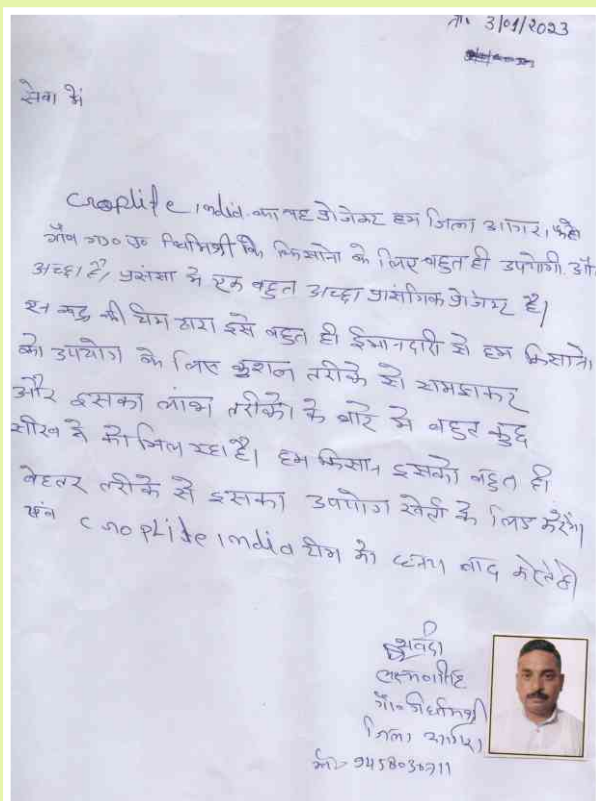 ता. 3/01/2023
सेवा में
Croplife india का यह प्रोजेक्ट हम जिला आगरा,
गाँव के किसानो के लिए बहुत ही उपयोगी और
अच्छा है, प्रसंसा मे एक बहुत अच्छा प्रासंगिक प्रोजेक्ट है।
की टीम द्वारा इसे बहुत ही ईमानदारी से हम किसानो
को उपयोग के लिए कुशल तरीके से समझाकर
और इसका लाभ तरीको के बारे मे बहुत कुछ
सीखने को मिल रहा है। हम किसान इसको बहुत ही
बेहतर तरीके से इसका उपयोग खेती के लिए करेंगे।
एवं Croplife india टीम को धन्यवाद करते है।
प्रार्थी
लक्ष्मणसिंह
गाँव
जिला आगरा